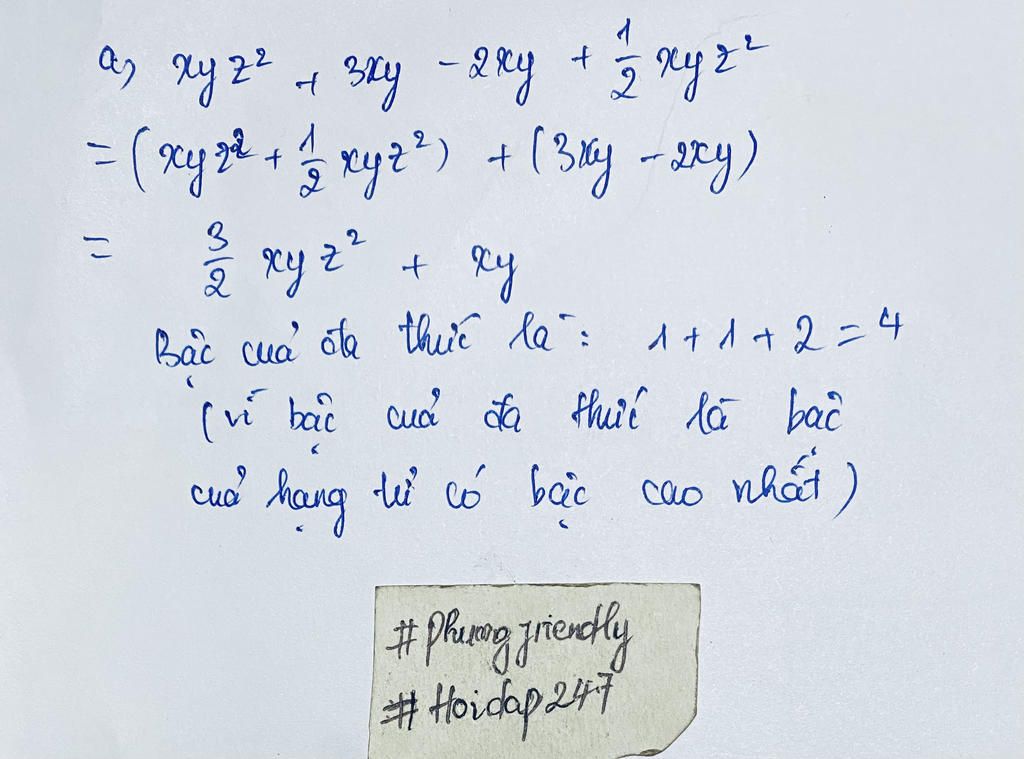 a) xyz² + 3xy - 2xy + 1/2 xyz²
= (xyz² + 1/2 xyz²) + (3xy - 2xy)
= 3/2 xyz² + xy
Bậc của đa thức là: 1 + 1 + 2 = 4
(vì bậc của đa thức là bậc
của hạng tử có bậc cao nhất)
#Phuong friendly
#Hoidap247